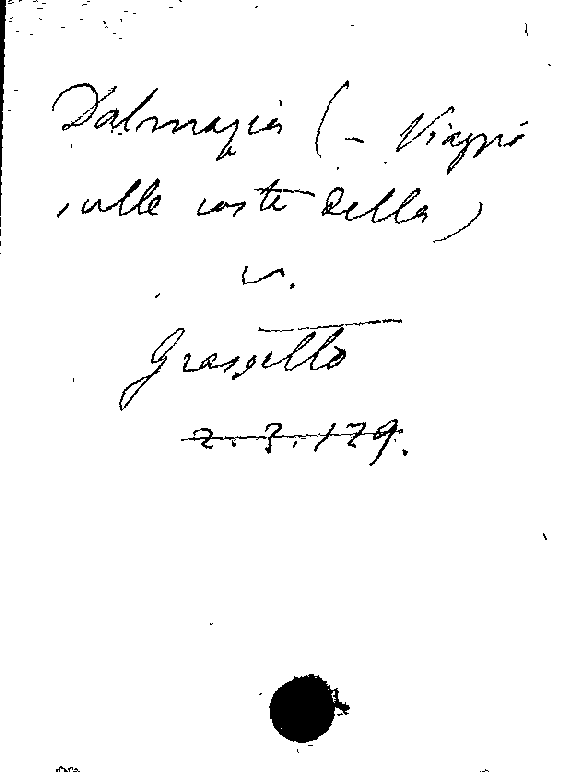 Dalmazia (- Viaggio
sulle coste della)
v.
Grassetto
2.3.129.